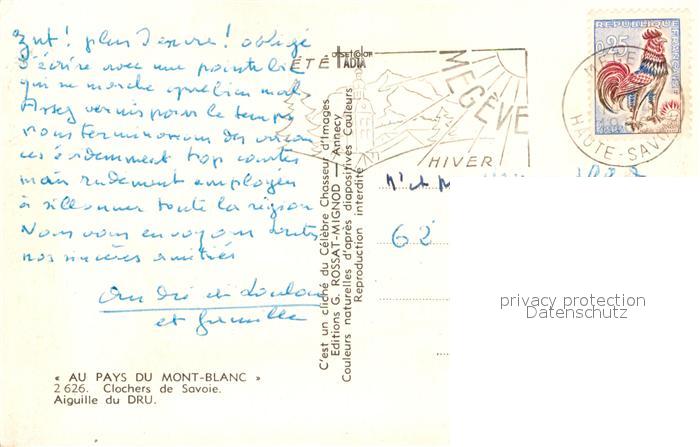 Zut! plus d'encre! obligé
d'écrire avec une pointe bic
qui ne marche que bien mal.
Assez vernis pour le temps
nous terminerons des vacan
ces évidemment trop courtes
mais rudement employées
à sillonner toute la région
Nous vous envoyons toutes
nos sincères amitiés
André et Loulou
et famille
« AU PAYS DU MONT-BLANC »
2 626. Clochers de Savoie.
Aiguille du DRU.
C'est un cliché du Célèbre Chasseur d'Images
Editions G. ROSSAT-MIGNOD — Annecy
Couleurs naturelles d'après diapositives Couleurs
Reproduction interdite
OFFSETCOLOR
IADIA
ÉTÉ
MEGÈVE
HIVER
REPUBLIQUE FRANÇAISE
0,25
MEGÈVE
HAUTE-SAVOIE
M' et
62
privacy protection
Datenschutz